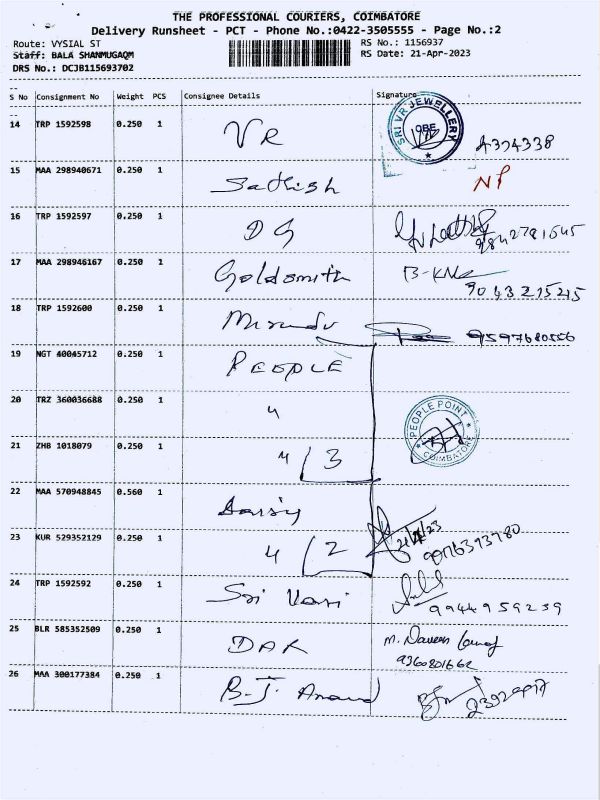 THE PROFESSIONAL COURIERS, COIMBATORE
Delivery Runsheet - PCT - Phone No.:0422-3505555 - Page No.:2
Route: VYSIAL ST RS No.: 1156937
Staff: BALA SHANMUGAQM RS Date: 21-Apr-2023
DRS No.: DCJB115693702
S No Consignment No Weight PCS Consignee Details Signature
14 TRP 1592598 0.250 1 VR SRI VR JEWELLERY CBE A324338
15 MAA 298940671 0.250 1 Sathish NP
16 TRP 1592597 0.250 1 DG 9842781545
17 MAA 298946167 0.250 1 Goldsmith 9043215215
18 TRP 1592600 0.250 1 9597680556
19 NGT 40045712 0.250 1 PEOPLE
20 TRZ 360036688 0.250 1 " PEOPLE POINT COIMBATORE
21 ZHB 1018079 0.250 1 " 3
22 MAA 570948845 0.560 1
23 KUR 529352129 0.250 1 " 2 21/4/23
24 TRP 1592592 0.250 1 Sri 9944959239
25 BLR 585352509 0.250 1 DAR M.
9360801662
26 MAA 300177384 0.250 1 B.J. Anand